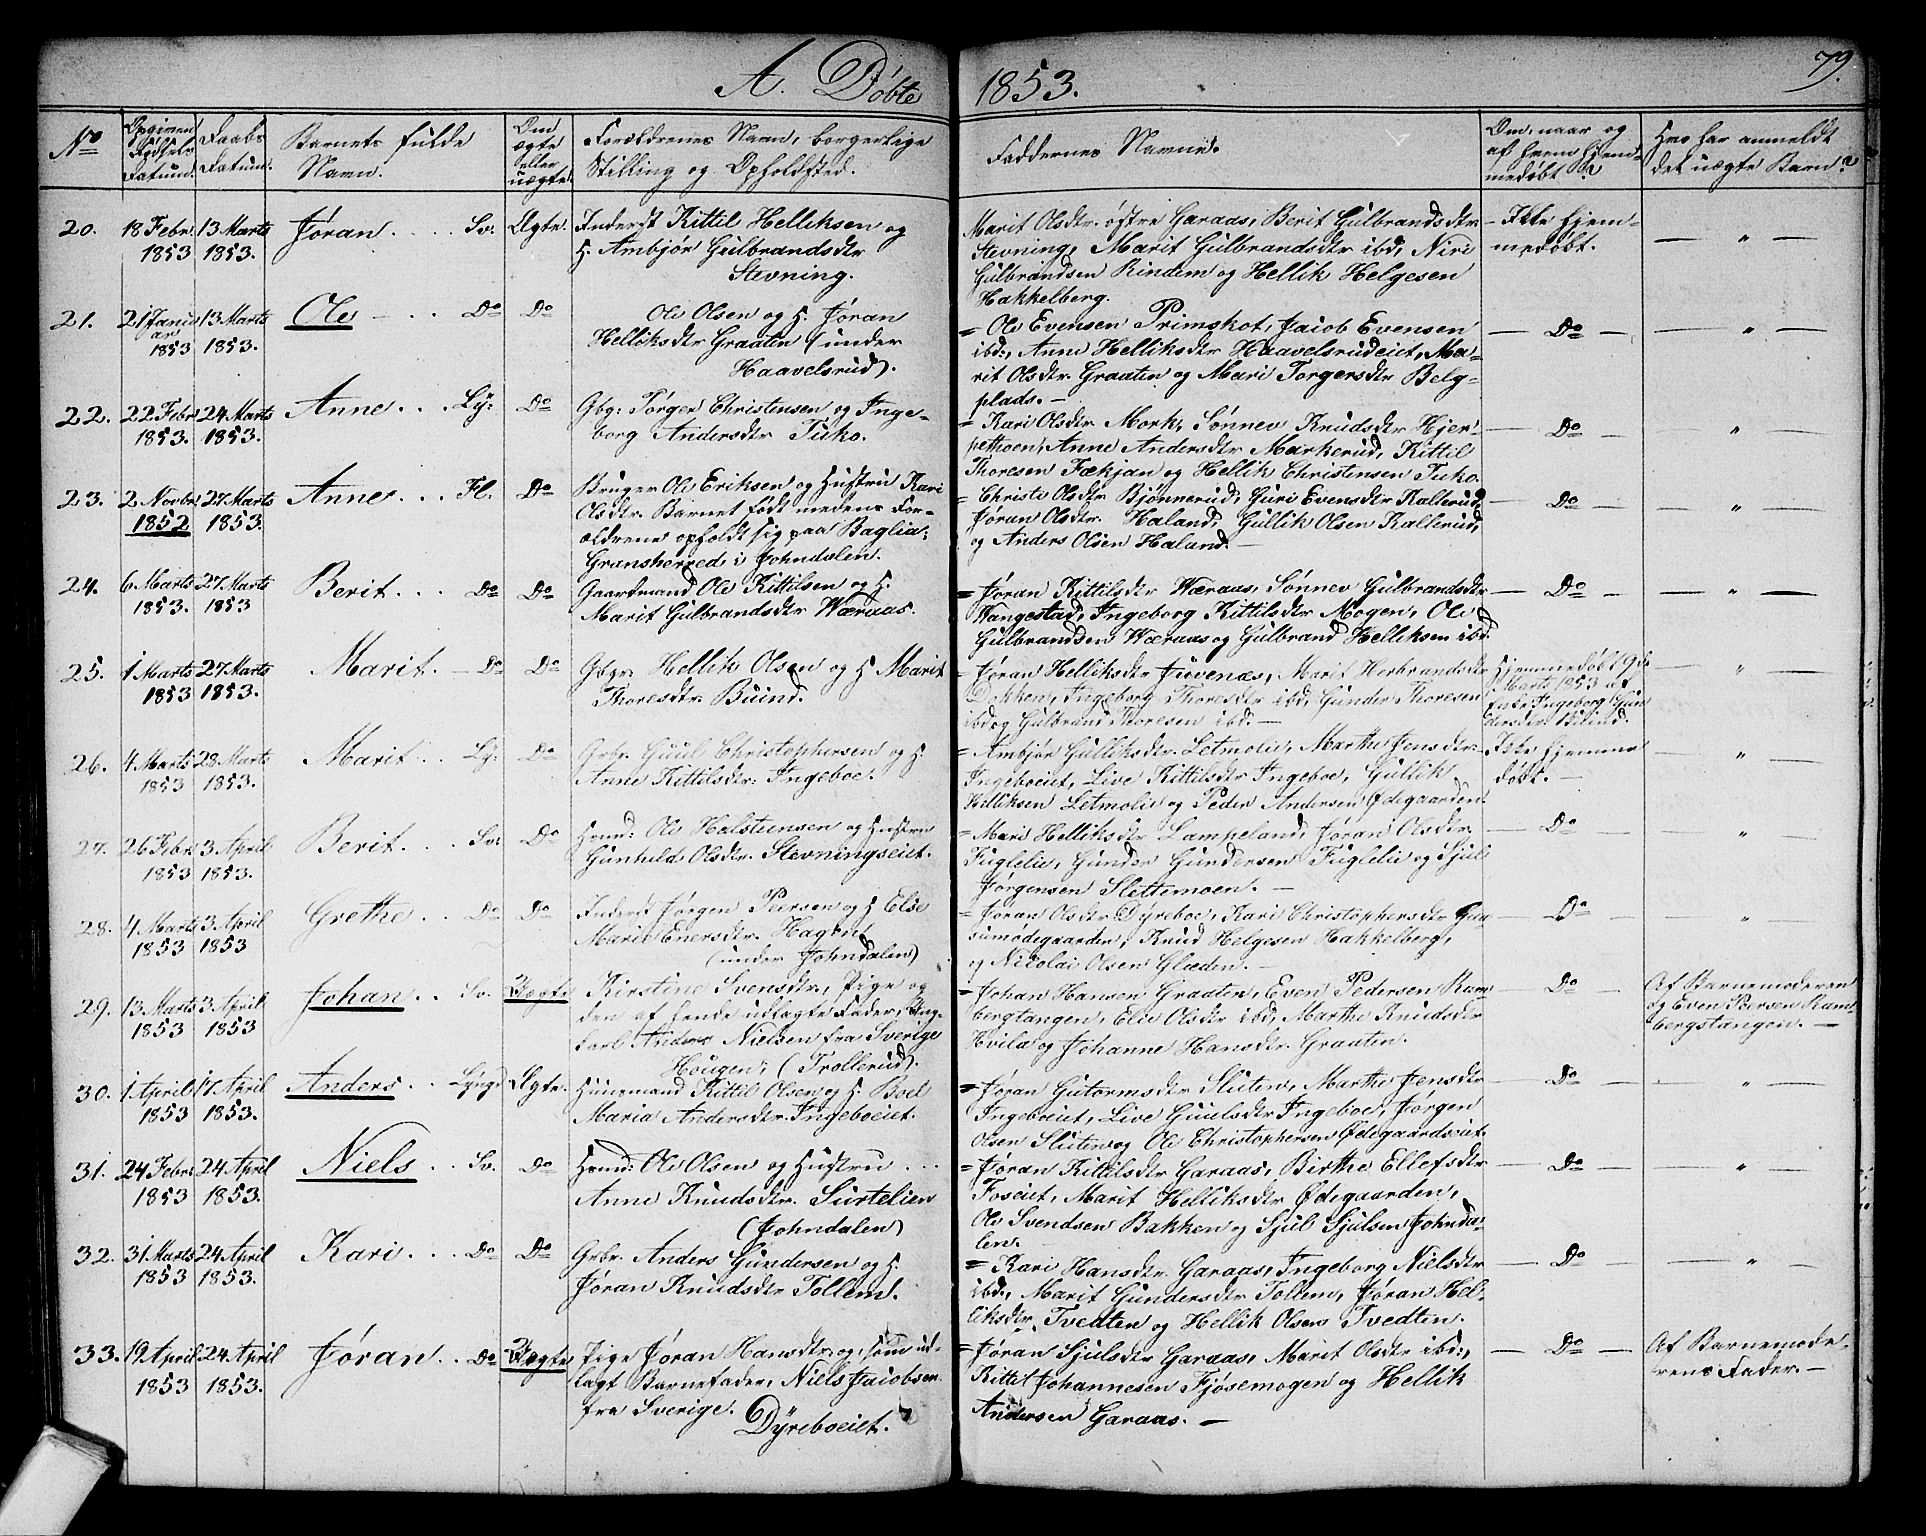 A. Döbte 1853. 79.
No
Opgiven Fødsels Datum.
Daabs Datum.
Barnets fulde Navn.
Om ægte eller uægte.
Forældrenes Navn, borgerlige Stilling og Opholdsted.
Faddernes Navne.
Om, naar og af hvem hjemmedøbt?
Hvo har anmeldt det uægte Barn?
20. 18 Febr. 1853 13 Marts 1853. Jöran. . . . Sv. Ægte. Inderst Kittil Helliksen og
H. Ambjör Gulbrandsdtr
Stevning.
Marit Olsdtr. östre Garaas, Berit Gulbrandsdtr
Stevning, Marit Gulbrandsdtr ibd, Niri
Gulbrandsen Rindem og Hellik Helgesen
Hakkelberg.
– Ikke hjemmedøbt. — " —
21. 21 Januar 1853 13 Marts 1853. Ole – . . Do Do
Ole Olsen og H. Jöran
Helliksdtr Graaten (under
Haavelsrud).
= Ole Evensen Primskot, Jacob Evensen
ibd:, Anne Helliksdtr Haavelsrudeiet, Ma-
rit Olsdtr. Graaten og Mari Torgersdtr Belg-
plads. –
— Do — — " —
22. 22. Febr 1853. 24. Marts 1853. Anne. . . Ly: Do
Gbg: Torger Christensen og Inge-
borg Andersdtr Tuko.
= Kari Olsdtr Mork, Sønnev Knudsdtr Hjer-
pethoen, Anne Andersdtr Markerud, Kittil
Thoresen Fækjan og Hellik Christensen Tuko.
Do — — " —
23. 2. Novbr 1852 27 Marts 1853. Anne. . . Fl. Do
Bruger Ole Eriksen og Hustru Kari
Olsdtr. Barnet født medens For-
ældrene opholdt sig paa Baglia:
Gransherred i Johndalen.
= Christi Olsdtr Bjønnerud, Guri Evensdtr Kallerud,
Jöran Olsdtr. Haland, Gullik Olsen Kallerud,
og Anders Olsen Haland. –
Do — — " —
24. 6 Marts 1853. 27. Marts 1853 Berit. . . Do Do
Gaardmand Ole Kittilsen og H.
Marit Gulbrandsdtr Wæraas.
= Jöran Kittilsdtr Wæraas, Sønnev Gulbrandsdtr
Wangestad, Ingeborg Kittilsdtr Mogen, Ole
Gulbrandsen Wæraas og Gulbrand Helliksen ibd.
— Do — — " —
25. 1 Marts 1853 27 Marts 1853. Marit. – Do Do
Gbgr: Hellik Olsen og H Marit
Thoresdtr. Buind.
– Jöran Helliksdtr Juvenæs, Marit Herbrandsdtr
Bakken, Ingeborg Thoresdtr ibd, Gunder Thoresen
ibd og Gulbrand Thoresen ibd: –
Hjemmedøbt 9de Marts 1853 af Ingeborg — " —
26. 4 Marts 1853 28. Marts 1853. Marit . . Ly: Do
Grbr. Guul Christophersen og H
Anne Kittilsdtr: Ingeboe.
= Ambjör Gulliksdtr. Letmolie, Marthe Jensdtr.
Ingeboeiet, Live Kittilsdtr Ingeboe, Gullik
Helliksen Letmolie og Peder Andersen Ødegaarden.
Ikke hjemmedøbt. – — " —
27. 26 Febr. 1853 3 April 1853. Berit. . . Sv. Do
Hsmd: Ole Halsteinsen og Hustru
Gunhuld Olsdtr. Stevningseiet.
= Mari Helliksdtr Lampeland, Jöran Olsdtr.
Fuglelie, Gunder Gundersen Fuglelie og Sjul
Jörgensen Slettemoen. –
— Do — "
28. 4 Marts 1853 3 April 1853 Grethe . . Do Do
Inderst Jörgen Peersen og H Else
Marie Enersdtr. Hagen,
(under Johndalen)
= Jöran Olsdtr Dyreboe, Kari Christophersdtr Gaa-
sumødegaarden, Knud Helgesen Hakkelberg,
og Nicolai Olsen Glæden. –
— Do — "
29. 13. Marts 1853 3 April 1853 Johan . . Sv. Uægte
Kirstine Svensdtr, Pige og
den af hende udlagte Fader, Ung-
karl Anders Nielsen fra Sverige
Hougen, (Trollerud).
= Johan Hansen Graaten, Even Pedersen Ram
bergtangen, Elie Olsdtr ibd, Marthe Knudsdtr
Hvila og Johanne Hansdtr. Graaten.
— Do — Af Barnemoderen
og Even Peersen Ram-
bergstangen. —
30. 1 April 1853 17 April 1853. Anders. . . Lyngd. Ægte.
Huusmand Kittil Olsen og H. Boel
Maria Andersdtr Ingeboeiet.
= Jöran Gutormsdtr Sluten, Marthe Jensdtr
Ingeboeiet, Live Guulsdtr Ingeboe, Jörgen
Olsen Sluten og Ole Christophersen Ødegaardseiet.
— Do — "
31. 24 Febr. 1853 24 April 1853. Niels . . Sv. Do
Hsmd: Ole Olsen og Hustru . . .
Anne Knudsdtr. Surtelien
(Johndalen)
= Jöran Kittilsdtr Garaas, Birthe Ellefsdtr
Foseiet, Marit Helliksdtr Ødegaarden,
Ole Svendsen Bakken og Sjul Sjulsen Johnda-
len.
— Do — "
32. 31. Marts 1853 24 April 1853. Kari . . . Do Do
Grbr. Anders Gundersen og H.
Jöran Knudsdtr Tollem.
= Kari Hansdtr Garaas, Ingeborg Nielsdtr
ibd., Marit Gundersdtr Tollem, Jöran Hel-
liksdtr. Tvedten og Hellik Olsen Tvedten.
— Do — — " —
33. 19 April 1853 24 April 1853. Jöran. . Do Uægte
Pige Jöran Hansdtr: og, som ud-
lagt Barnefader, Niels Jacobsen
fra Sverige. Dyreboeiet.
= Jöran Sjulsdtr Garaas, Marit Olsdtr ibd:,
Kittil Johannesen Fjösemogen og Hellik
Andersen Garaas. –
— Do — Af Barnemode-
rens Fader. –